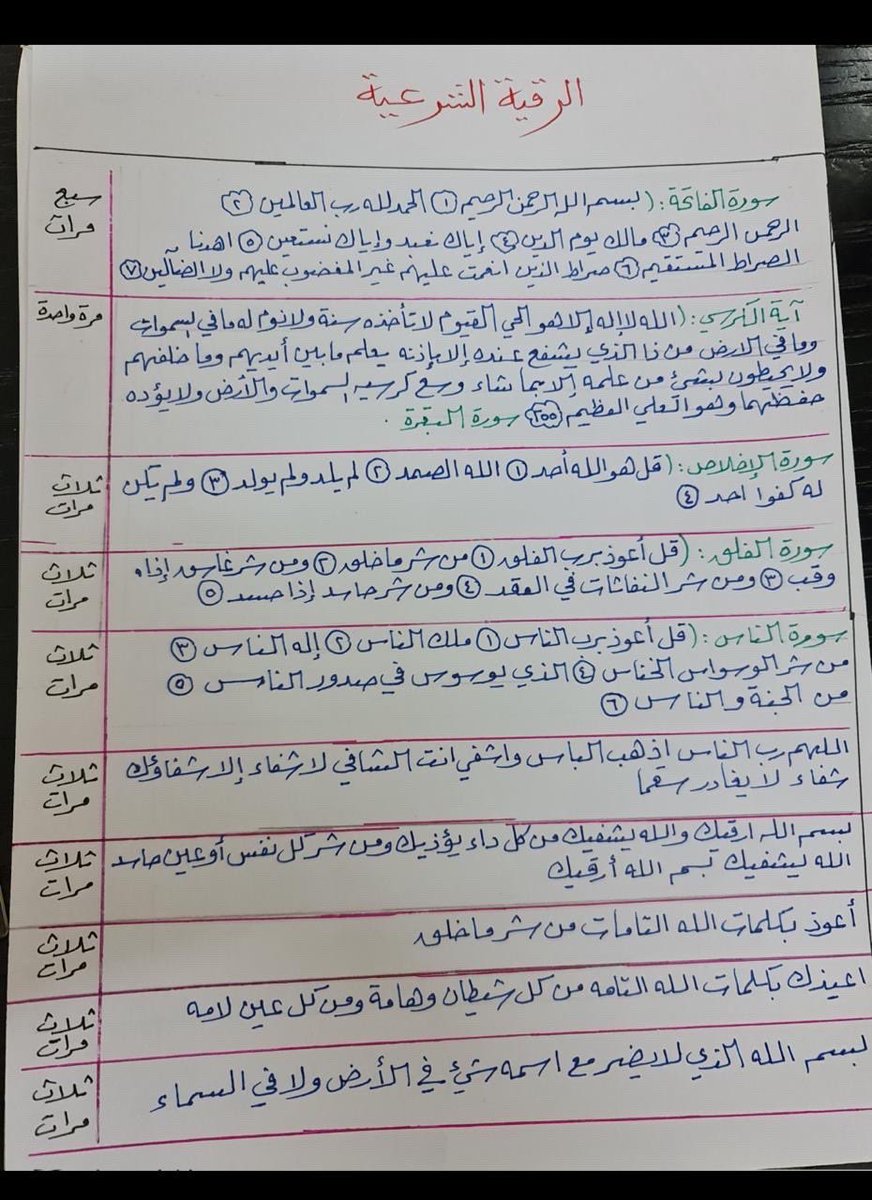 الرقية الشرعية
سورة الفاتحة: (بسم الله الرحمن الرحيم ١ الحمد لله رب العالمين ٢
سبع مرات
الرحمن الرحيم ٣ مالك يوم الدين ٤ إياك نعبد وإياك نستعين ٥ اهدنا
الصراط المستقيم ٦ صراط الذين انعمت عليهم غير المغضوب عليهم ولا الضالين ٧
آية الكرسي: (الله لا إله إلا هو الحي القيوم لا تأخذه سنة ولا نوم له ما في السموات
مرة واحدة
وما في الارض من ذا الذي يشفع عنده إلا بإذنه يعلم ما بين أيديهم وما خلفهم
ولا يحيطون بشئ من علمه إلا بما شاء وسع كرسيه السموات والأرض ولا يؤده
حفظهما وهو العلي العظيم ٢٥٥ سورة البقرة .
سورة الإخلاص: (قل هو الله أحد ١ الله الصمد ٢ لم يلد ولم يولد ٣ ولم يكن
ثلاث مرات
له كفوا احد ٤
سورة الفلق: (قل أعوذ برب الفلق ١ من شر ما خلق ٢ ومن شر غاسق إذا
ثلاث مرات
وقب ٣ ومن شر النفاثات في العقد ٤ ومن شر حاسد إذا حسد ٥
سورة الناس: (قل أعوذ برب الناس ١ ملك الناس ٢ إله الناس ٣
ثلاث مرات
من شر الوسواس الخناس ٤ الذي يوسوس في صدور الناس ٥
من الجنة والناس ٦
اللهم رب الناس اذهب الباس واشفي انت الشافي لا شفاء إلا شفاؤك
ثلاث مرات
شفاء لا يغادر سقما
بسم الله ارقيك والله يشفيك من كل داء يؤذيك ومن شر كل نفس أو عين حاسد
ثلاث مرات
الله يشفيك بسم الله أرقيك
أعوذ بكلمات الله التامات من شر ما خلق
ثلاث مرات
اعيذك بكلمات الله التامه من كل شيطان وهامة ومن كل عين لامه
ثلاث مرات
بسم الله الذي لا يضر مع اسمه شيء في الأرض ولا في السماء
ثلاث مرات